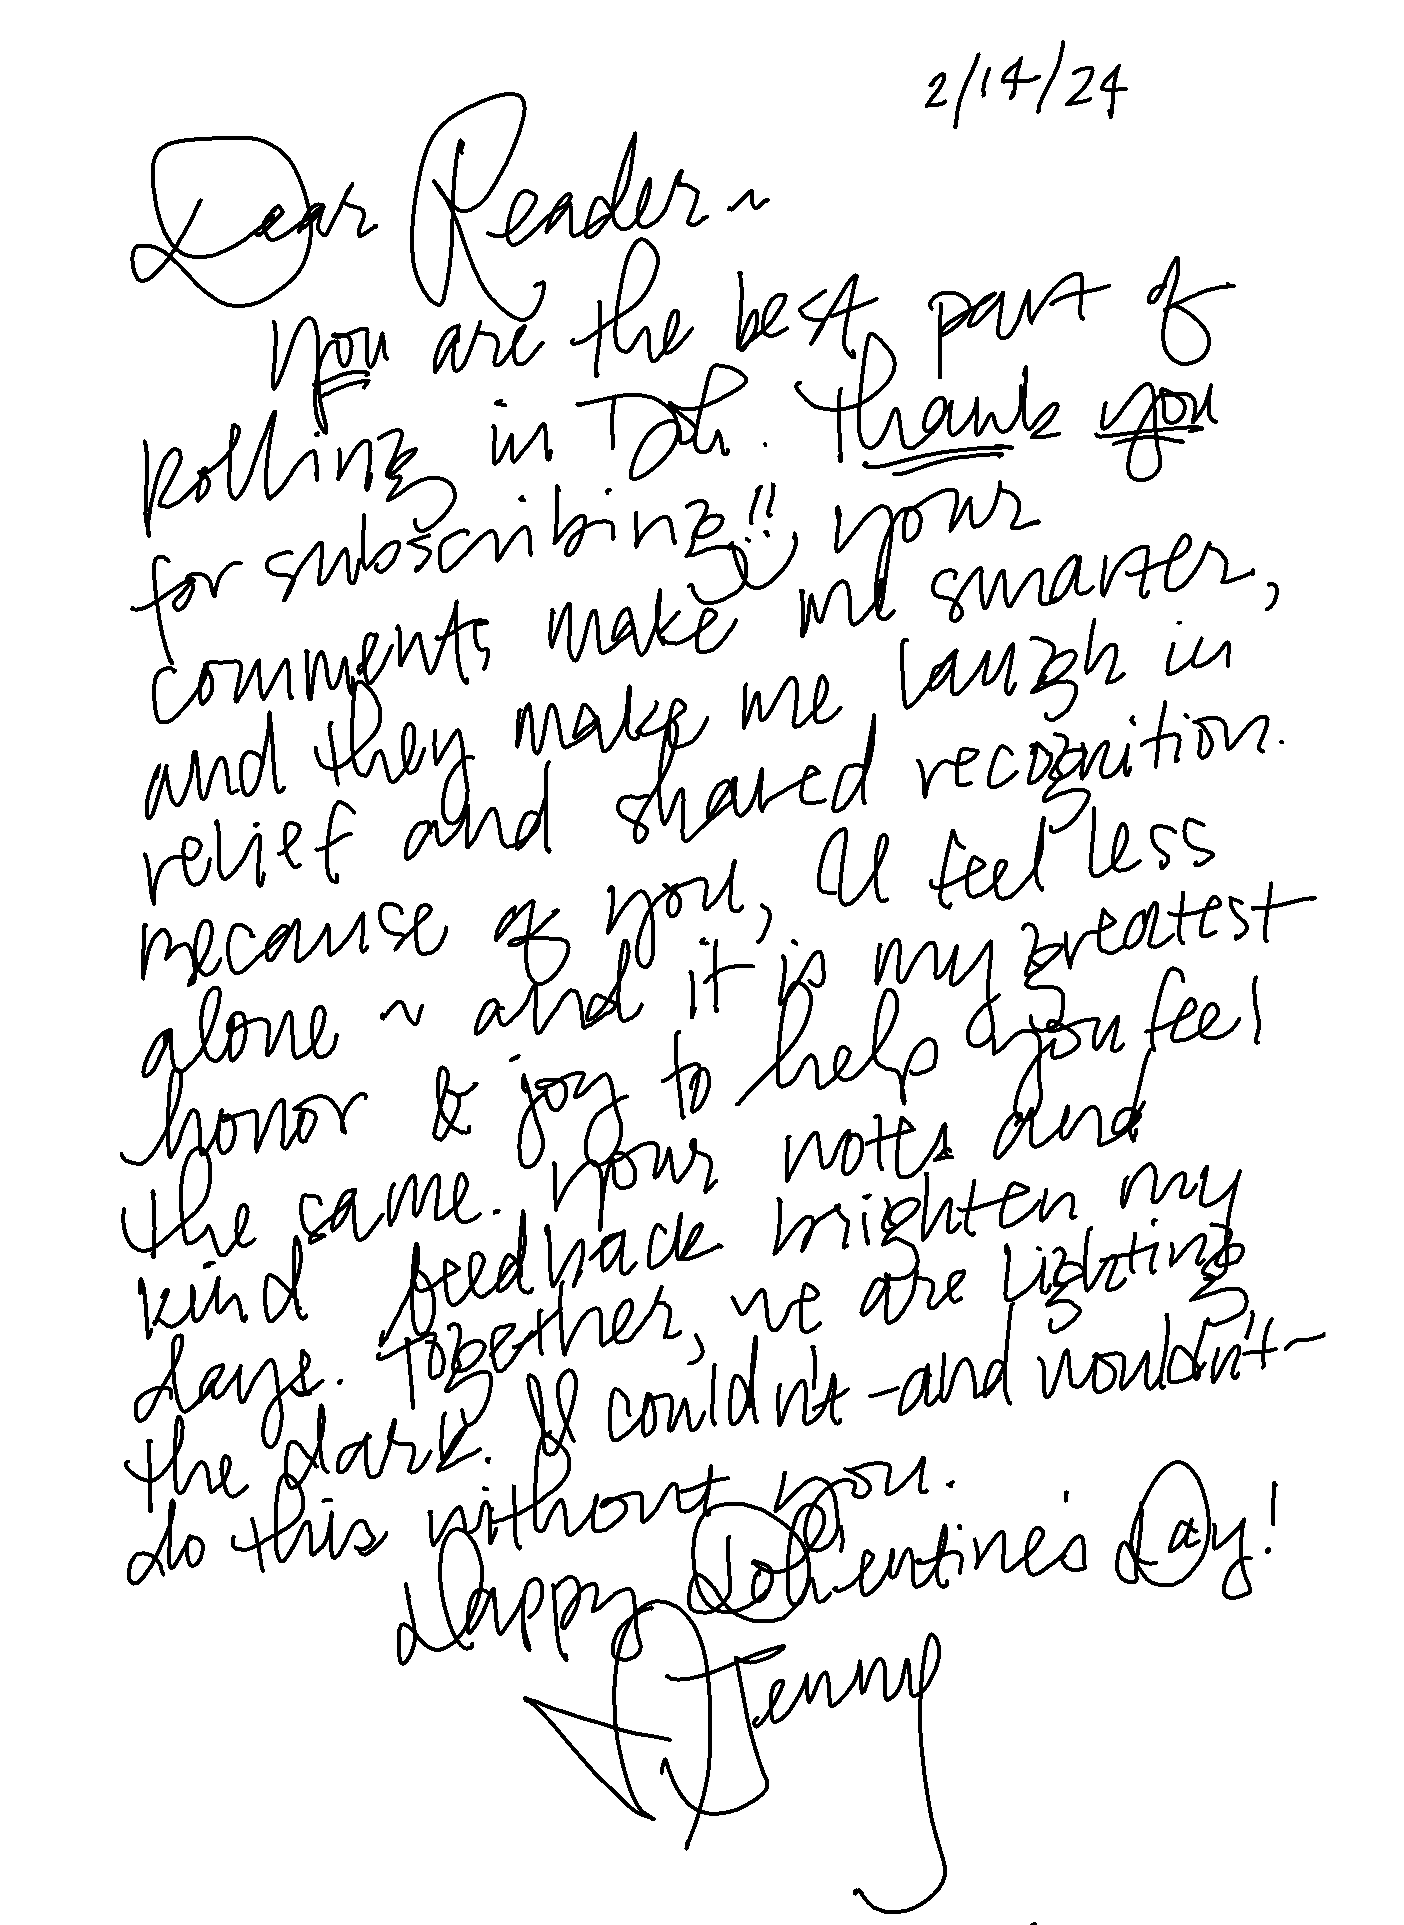 2/14/24
Dear Reader ~
You are the best part of
Rolling in Doh. Thank you
for subscribing!! Your
comments make me smarter,
and they make me laugh in
relief and shared recognition.
Because of you, I feel less
alone ~ and it is my greatest
honor & joy to help you feel
the same. Your notes and
kind feedback brighten my
days. Together, we are lighting
the dark. I couldn't - and wouldn't -
do this without you.
Happy Dohlentine's Day!
Jenny